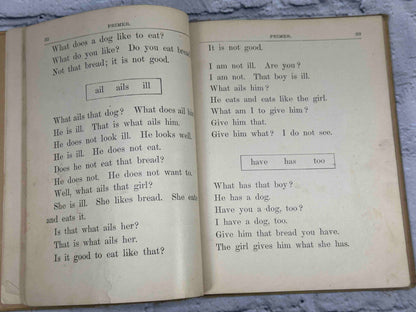 32
PRIMER.
What does a dog like to eat?
What do you like? Do you eat bread?
Not that bread; it is not good.
ail ails ill
What ails that dog? What does ail him?
He is ill. That is what ails him.
He does not look ill. He looks well.
He is ill. He does not eat.
Does he not eat that bread?
He does not. He does not want to.
Well, what ails that girl?
She is ill. She likes bread. She eats
and eats it.
Is that what ails her?
That is what ails her.
Is it good to eat like that?
PRIMER.
33
It is not good.
I am not ill. Are you?
I am not. That boy is ill.
What ails him?
He eats and eats like the girl.
What am I to give him?
Give him that.
Give him what? I do not see.
have has too
What has that boy?
He has a dog.
Have you a dog, too?
I have a dog, too.
Give him that bread you have.
The girl gives him what she has.